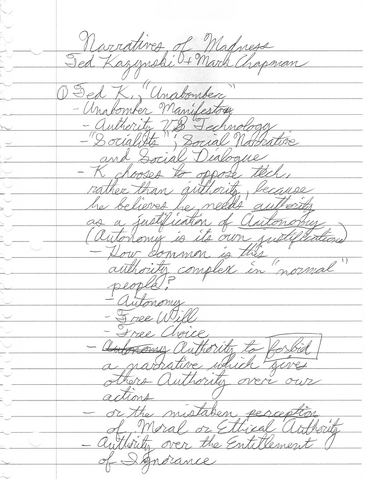 Narratives of Madness
Ted Kazynski + Mark Chapman
① Ted K., "Unabomber"
- Unabomber Manifesto
- Authority VS Technology
- "Socialists"; Social Narrative
and Social Dialogue
- K chooses to oppose tech,
rather than authority, because
he believes he needs authority
as a justification of Autonomy
(Autonomy is its own justification)
- How common is this
authority complex in "normal"
people?
- Autonomy
- Free Will
- Free Choice
- Autonomy Authority to forbid
a narrative which gives
others Authority over our
actions
- or the mistaken perception
of Moral or Ethical Authority
- Authority over the Entitlement
of Ignorance